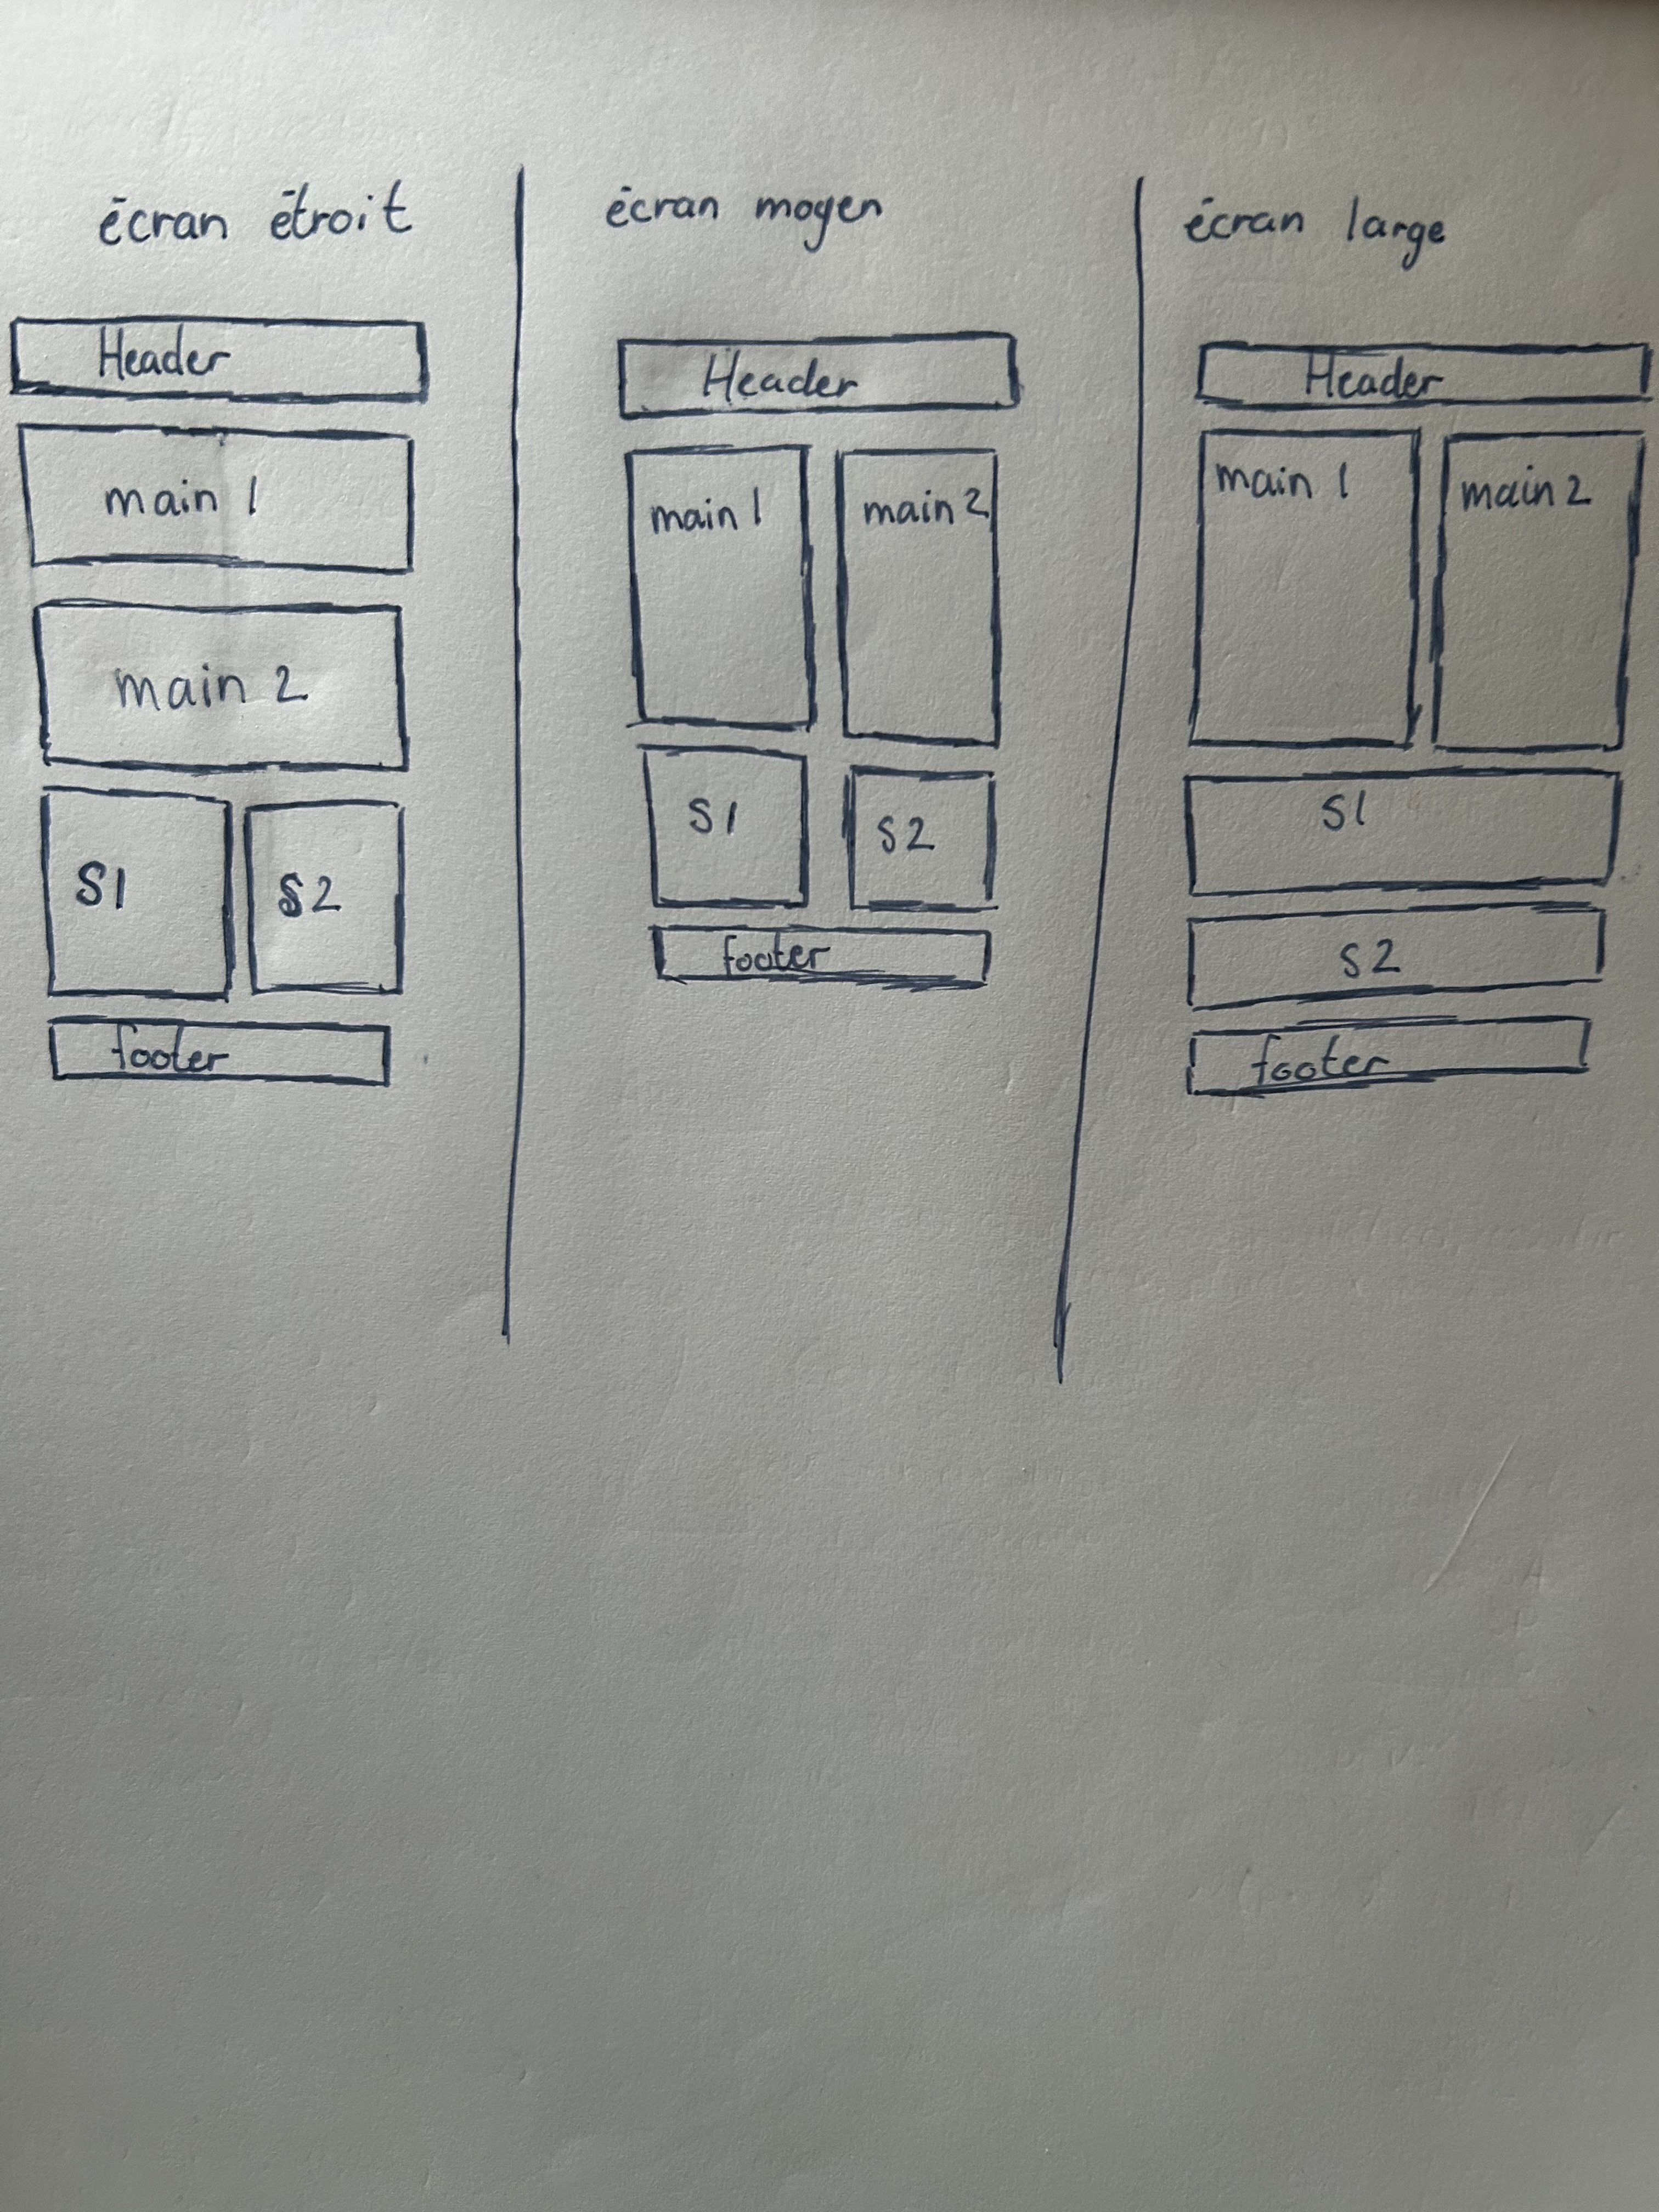 écran étroit
Header
main 1
main 2
S1
S2
footer
écran moyen
Header
main 1
main 2
S1
S2
footer
écran large
Header
main 1
main 2
S1
S2
footer